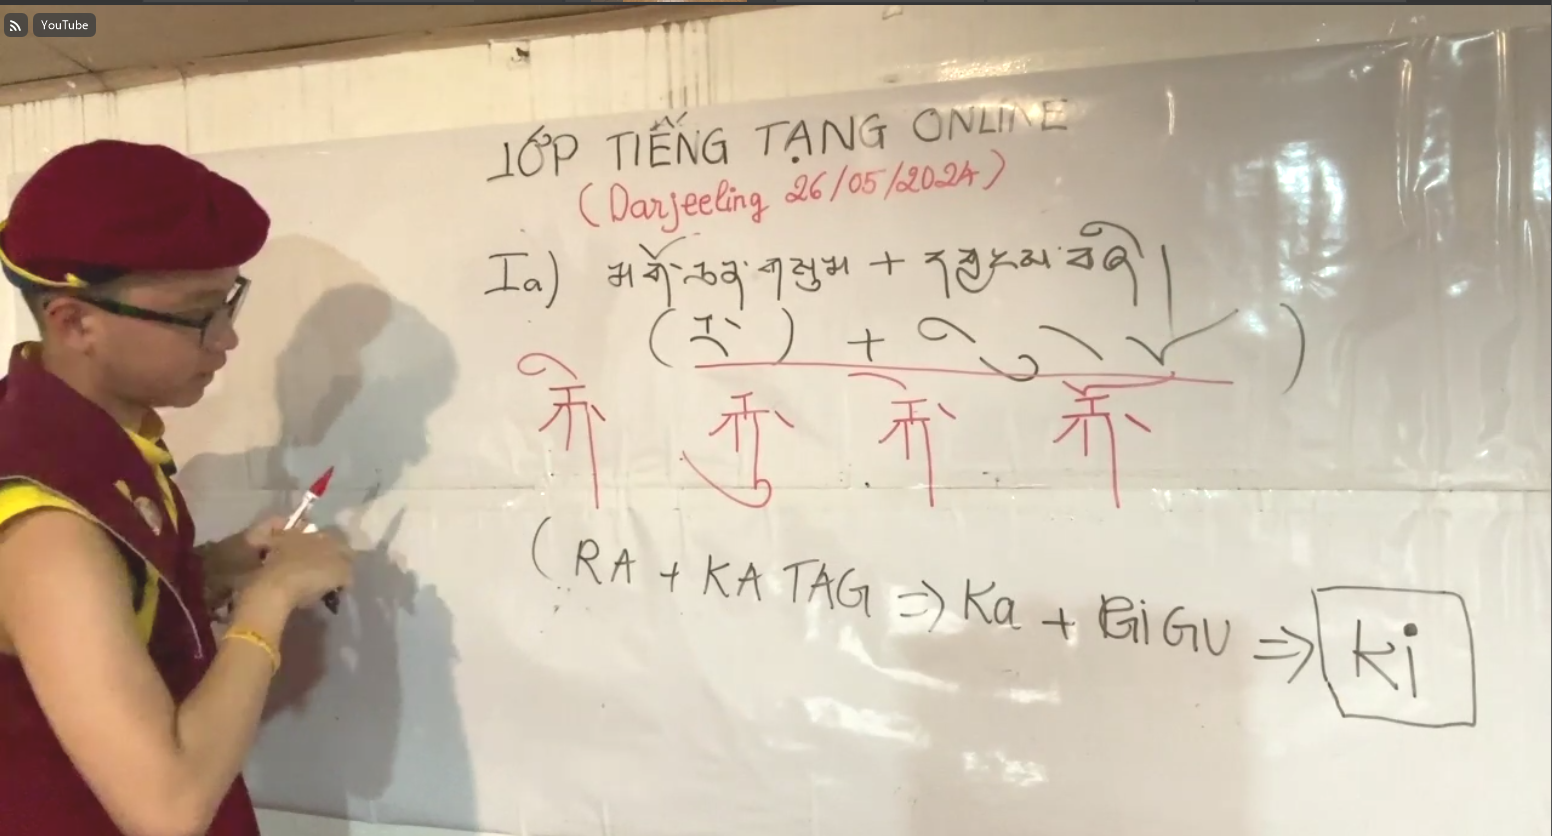 YouTube
LỚP TIẾNG TẠNG ONLINE
(Darjeeling 26/05/2024)
Ia) མགོ་ཅན་གསུམ + དབྱངས་བཞི།
(ར་) + ི ུ ེ ོ )
རྐི་ རྐུ་ རྐེ་ རྐོ་
(RA + KA TAG => Ka + GiGU => Ki